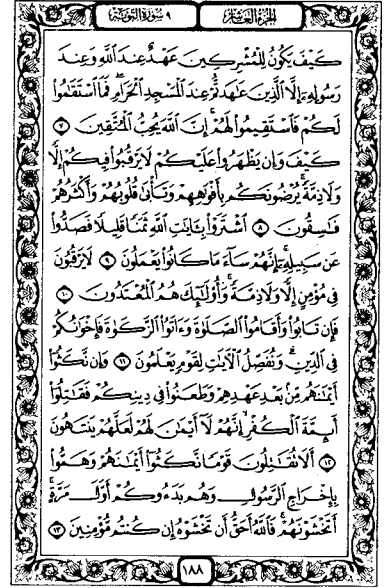 الجزء العاشر ٩ سورة التوبة
كَيْفَ يَكُونُ لِلْمُشْرِكِينَ عَهْدٌ عِندَ ٱللَّهِ وَعِندَ
رَسُولِهِۦٓ إِلَّا ٱلَّذِينَ عَٰهَدتُّمْ عِندَ ٱلْمَسْجِدِ ٱلْحَرَامِ ۖ فَمَا ٱسْتَقَٰمُوا۟
لَكُمْ فَٱسْتَقِيمُوا۟ لَهُمْ ۚ إِنَّ ٱللَّهَ يُحِبُّ ٱلْمُتَّقِينَ ٧
كَيْفَ وَإِن يَظْهَرُوا۟ عَلَيْكُمْ لَا يَرْقُبُوا۟ فِيكُمْ إِلًّا
وَلَا ذِمَّةً ۚ يُرْضُونَكُم بِأَفْوَٰهِهِمْ وَتَأْبَىٰ قُلُوبُهُمْ وَأَكْثَرُهُمْ
فَٰسِقُونَ ٨ ٱشْتَرَوْا۟ بِـَٔايَٰتِ ٱللَّهِ ثَمَنًا قَلِيلًا فَصَدُّوا۟
عَن سَبِيلِهِۦٓ ۚ إِنَّهُمْ سَآءَ مَا كَانُوا۟ يَعْمَلُونَ ٩ لَا يَرْقُبُونَ
فِى مُؤْمِنٍ إِلًّا وَلَا ذِمَّةً ۚ وَأُو۟لَٰٓئِكَ هُمُ ٱلْمُعْتَدُونَ ١٠
فَإِن تَابُوا۟ وَأَقَامُوا۟ ٱلصَّلَوٰةَ وَءَاتَوُا۟ ٱلزَّكَوٰةَ فَإِخْوَٰنُكُمْ
فِى ٱلدِّينِ ۗ وَنُفَصِّلُ ٱلْـَٔايَٰتِ لِقَوْمٍ يَعْلَمُونَ ١١ وَإِن نَّكَثُوٓا۟
أَيْمَٰنَهُم مِّنۢ بَعْدِ عَهْدِهِمْ وَطَعَنُوا۟ فِى دِينِكُمْ فَقَٰتِلُوٓا۟
أَئِمَّةَ ٱلْكُفْرِ ۙ إِنَّهُمْ لَآ أَيْمَٰنَ لَهُمْ لَعَلَّهُمْ يَنتَهُونَ
١٢ أَلَا تُقَٰتِلُونَ قَوْمًا نَّكَثُوٓا۟ أَيْمَٰنَهُمْ وَهَمُّوا۟
بِإِخْرَاجِ ٱلرَّسُولِ وَهُم بَدَءُوكُمْ أَوَّلَ مَرَّةٍ ۚ
أَتَخْشَوْنَهُمْ ۚ فَٱللَّهُ أَحَقُّ أَن تَخْشَوْهُ إِن كُنتُم مُّؤْمِنِينَ ١٣
١٨٨